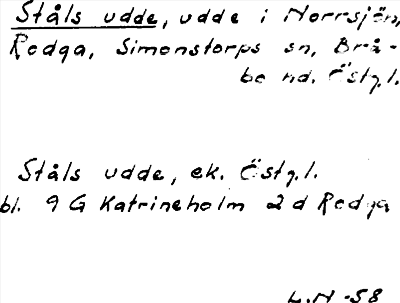 Ståls udde, udde i Norrsjön,
Rodga, Simonstorps sn, Brå-
bo hd. Östg.l.
Ståls udde, ek. Östg.l.
bl. 9 G Katrineholm 2 d Rodga
L.H -58